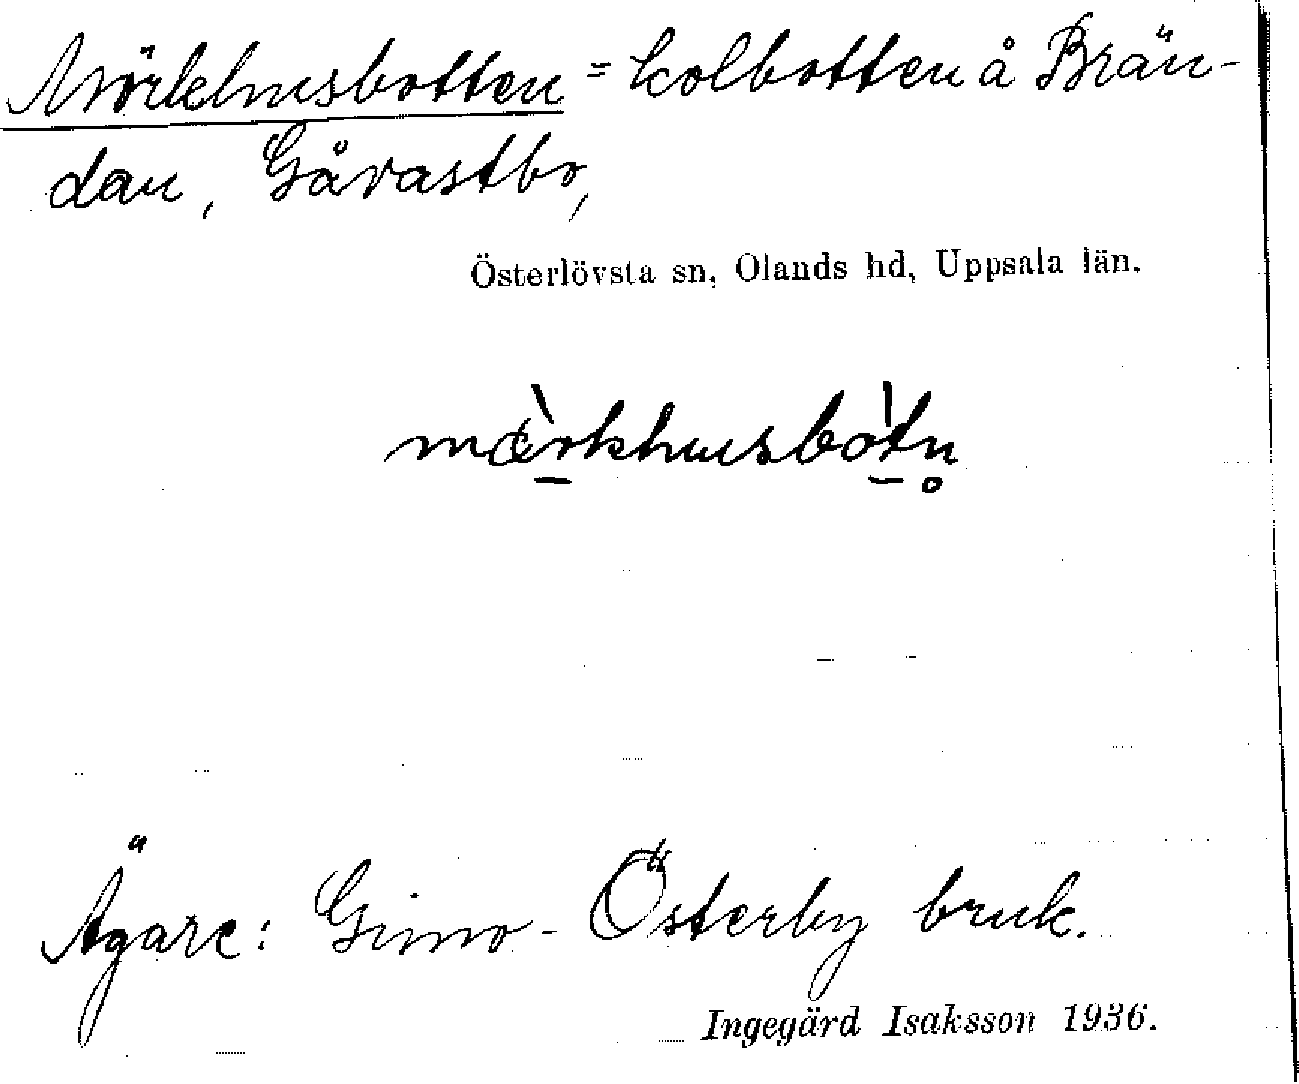 Mörkhusbotten = kolbotten å Brän-
dan, Gåvastbo,
Österlövsta sn, Olands hd, Uppsala län.
Ägare: Gimo-Österby bruk.
Ingegärd Isaksson 1936.